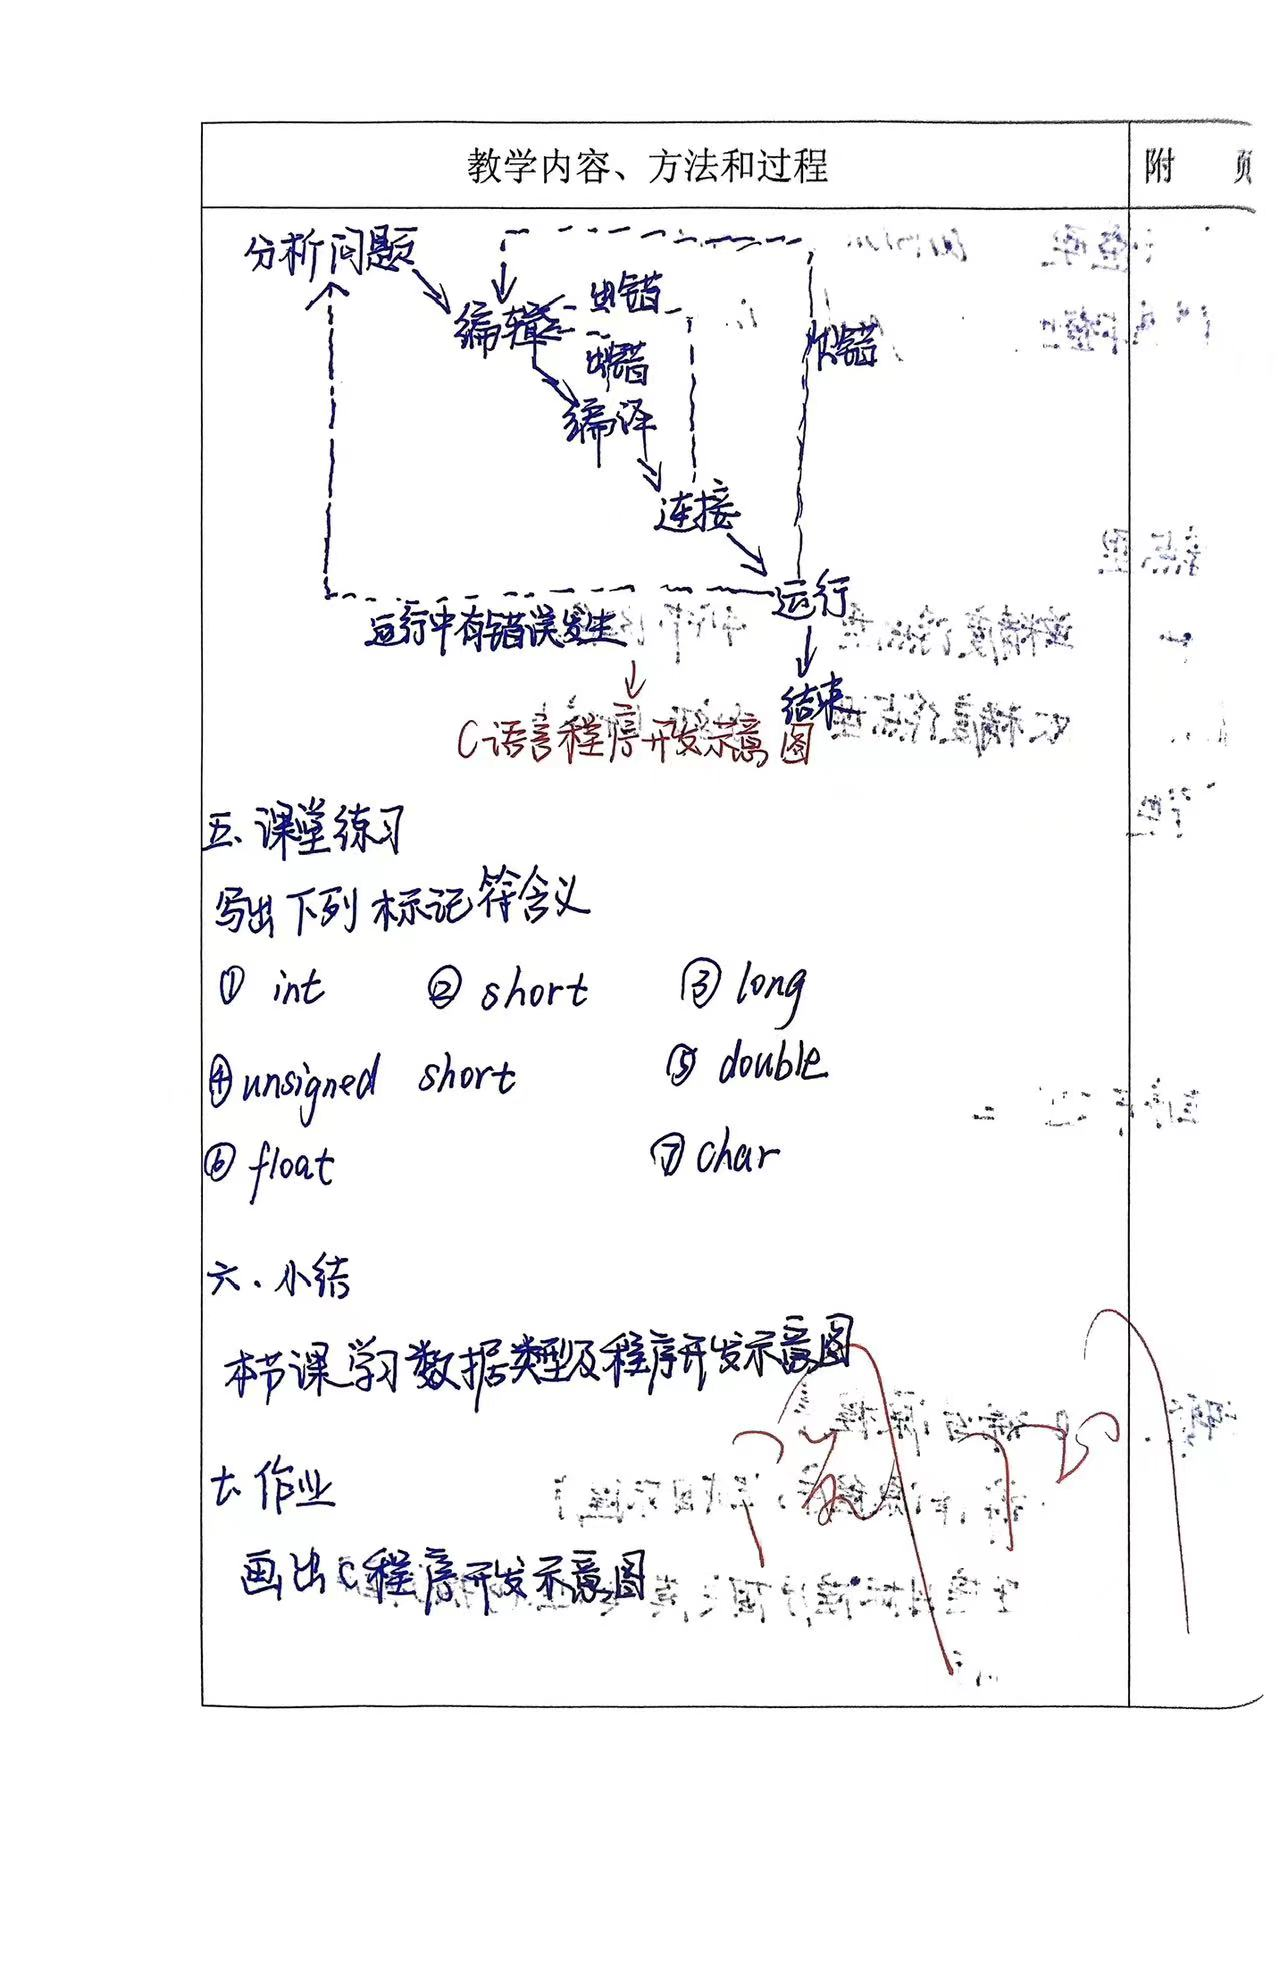 教学内容、方法和过程
附 页
分析问题
编辑
出错
出错
出错
编译
连接
运行
运行中有错误发生
结束
C语言程序开发示意图
五、课堂练习
写出下列标记符含义
① int ② short ③ long
④ unsigned short ⑤ double
⑥ float ⑦ char
六、小结
本节课学习数据类型及程序开发示意图
七、作业
画出C程序开发示意图